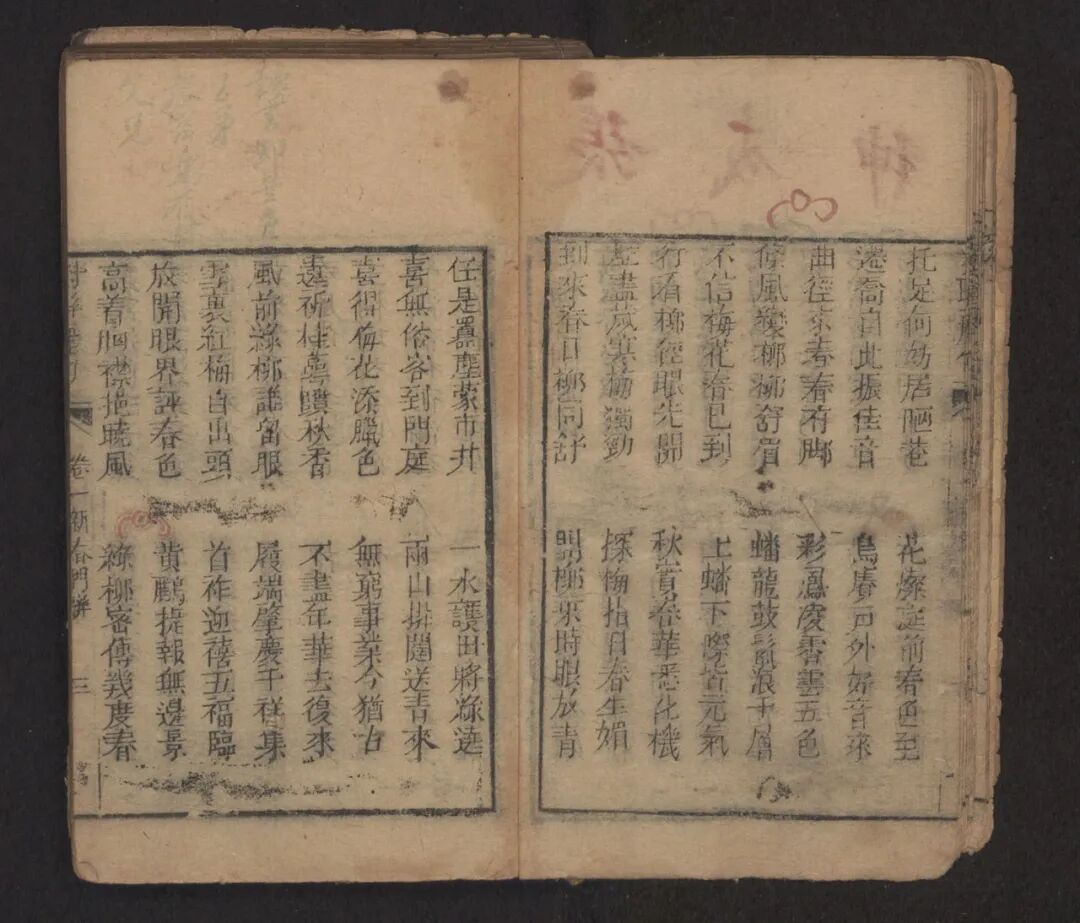 托足何妨居陋巷
花燦庭前春色至
遷喬自此振佳音
鳥賡戶外好音來
曲徑尋春春有脚
彩鳳凌霄雲五色
條風發柳柳舒眉
蟠龍鼓鬣浪千層
不信梅花春已到
上蟠下際皆元氣
行看柳徑眼先開
秋實春華悉化機
歷盡歲寒梅獨勁
探梅指日春生媚
到來春日柳同舒
問柳來時眼放青
任是囂塵蒙市井
一水護田將綠遶
喜無俗客到門庭
兩山排闥送青來
喜得梅花添臘色
無窮事業今猶古
遠祈桂萼噴秋香
不盡年華去復來
風前綠柳誰留眼
履端肇慶千祥集
雪裏紅梅自出頭
首祚迎禧五福臨
放開眼界評春色
黃鸝提報無邊景
高着胸襟挹曉風
綠柳密傳幾度春
卷一 新春門聯 三